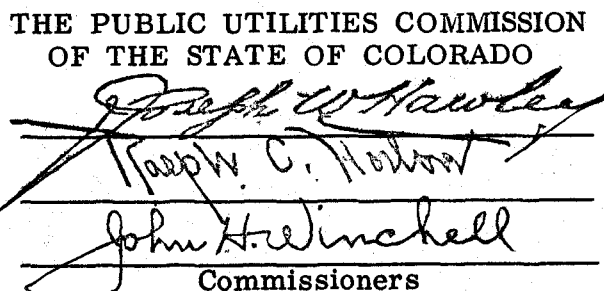 THE PUBLIC UTILITIES COMMISSION
OF THE STATE OF COLORADO
Joseph W Hawley
Ralph C. Horton
John H. Winchell
Commissioners